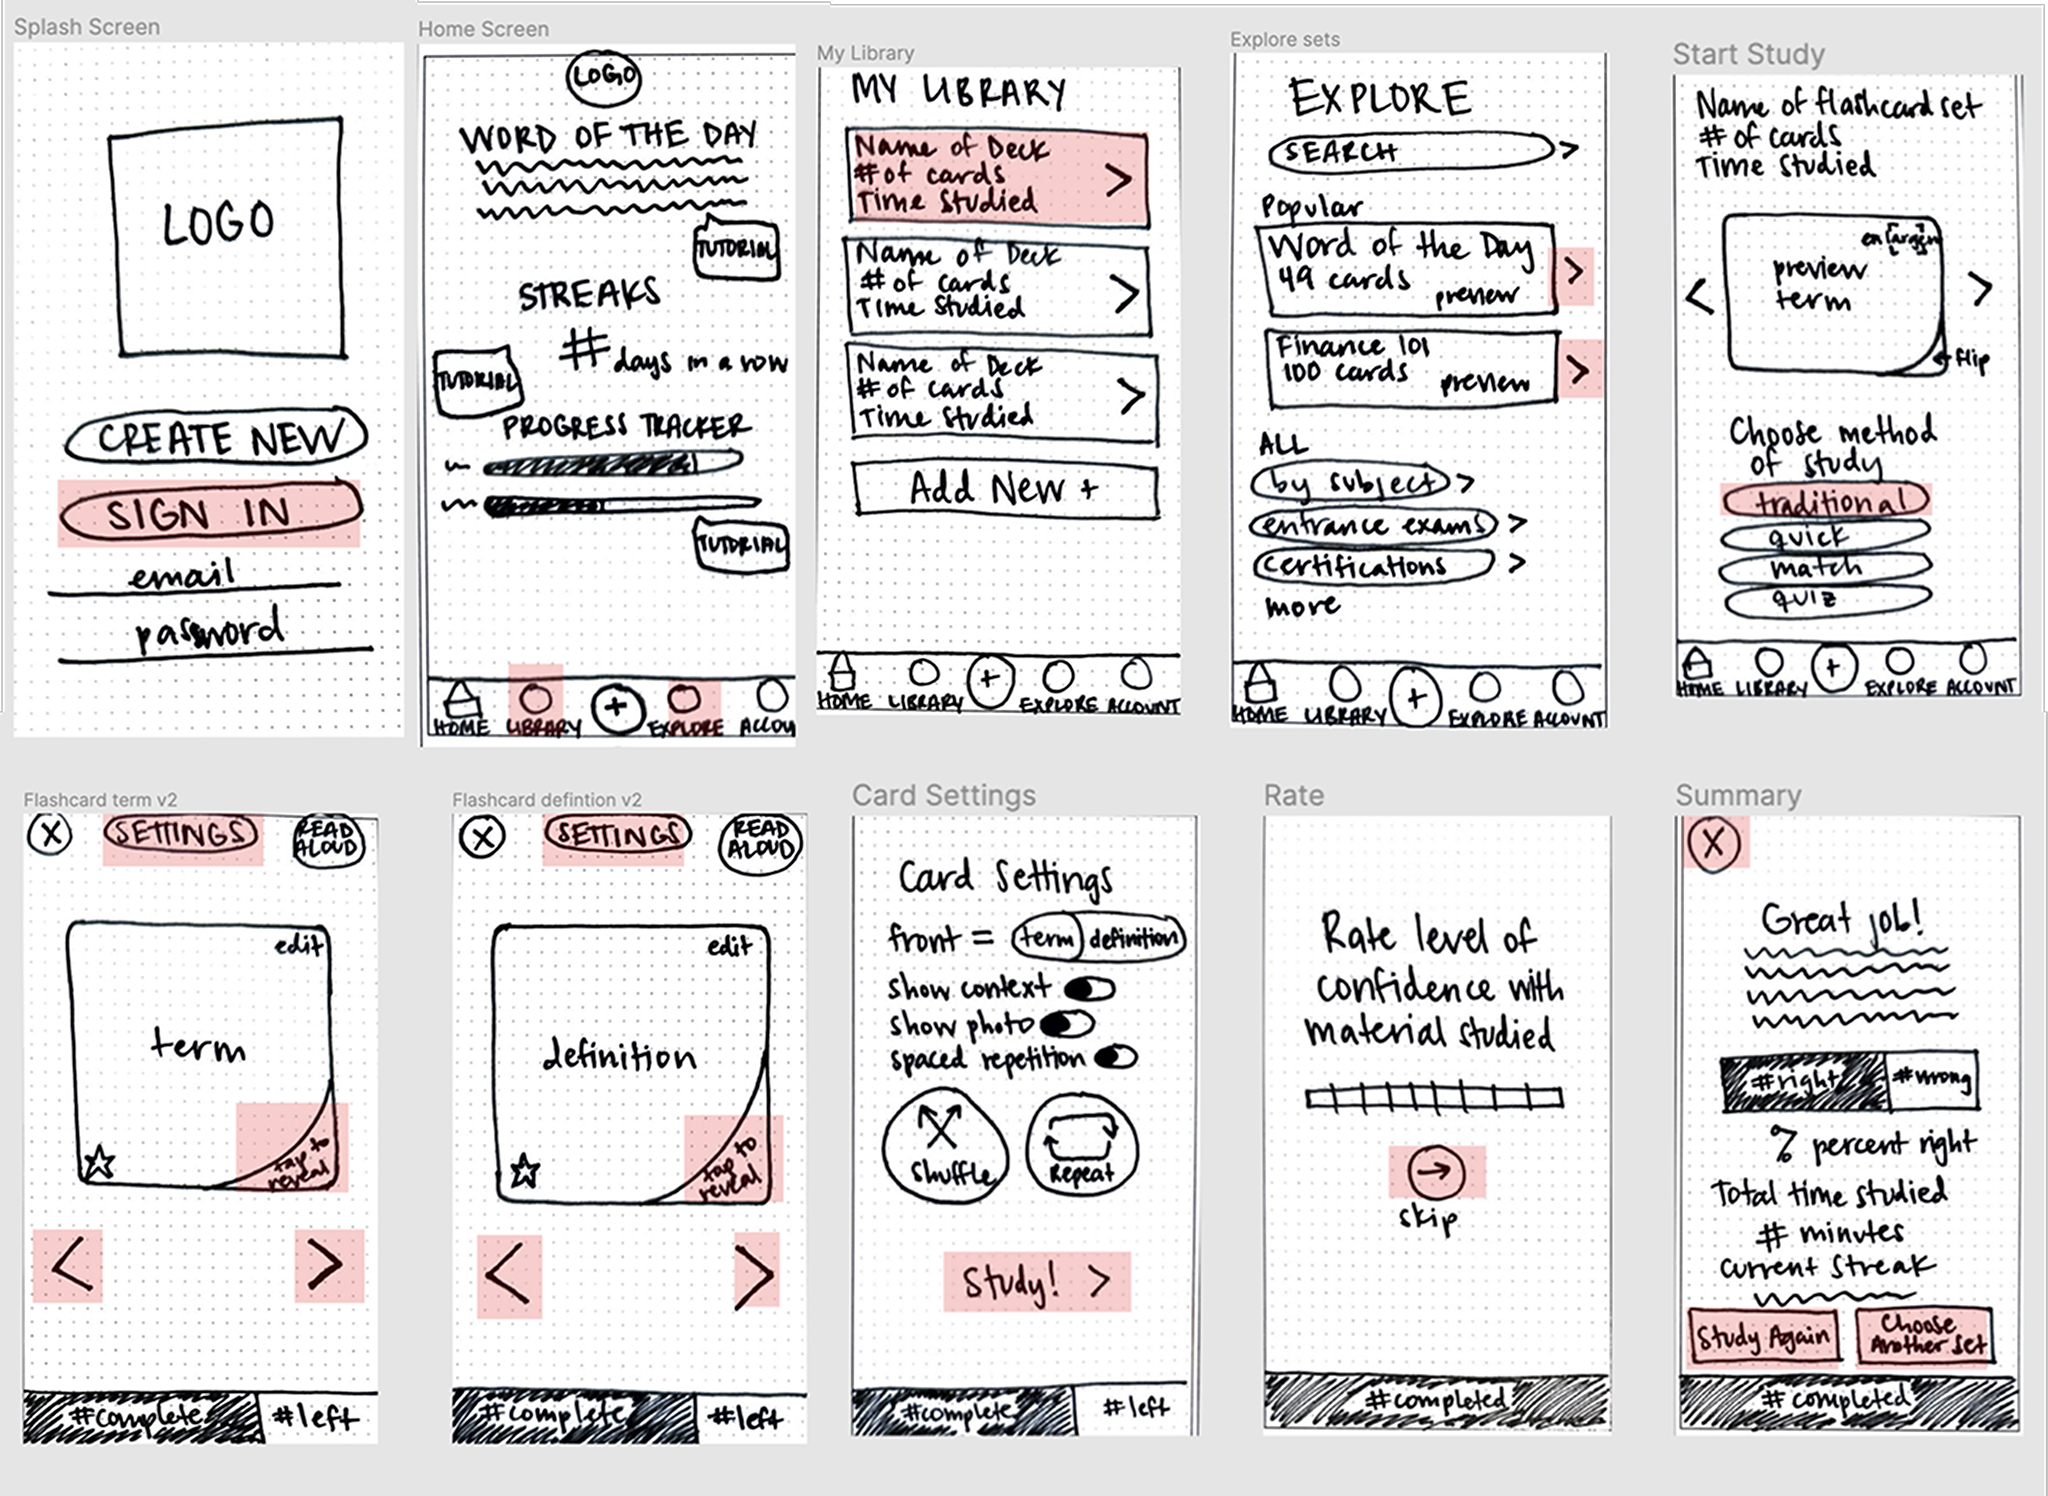 Splash Screen
LOGO
CREATE NEW
SIGN IN
email
password
Home Screen
LOGO
WORD OF THE DAY
TUTORIAL
STREAKS
# days in a row
TUTORIAL
PROGRESS TRACKER
TUTORIAL
HOME LIBRARY + EXPLORE ACCOU
My Library
MY LIBRARY
Name of Deck
# of cards
Time Studied
>
Name of Deck
# of cards
Time Studied
>
Name of Deck
# of cards
Time Studied
>
Add New +
HOME LIBRARY + EXPLORE ACCOUNT
Explore sets
EXPLORE
SEARCH >
Popular
Word of the Day
49 cards
preview
>
Finance 101
100 cards
preview
>
ALL
by subject >
entrance exams >
certifications >
more
HOME LIBRARY + EXPLORE ACCOUNT
Start Study
Name of flashcard set
# of cards
Time Studied
enlarge
preview
term
< >
flip
Choose method
of study
traditional
quick
match
quiz
HOME LIBRARY + EXPLORE ACCOUNT
Flashcard term v2
X SETTINGS READ
ALOUD
edit
term
tap to
reveal
< >
#complete #left
Flashcard defintion v2
X SETTINGS READ
ALOUD
edit
definition
tap to
reveal
< >
#complete #left
Card Settings
Card Settings
front = term definition
show context
show photo
spaced repetition
Shuffle Repeat
Study! >
#complete #left
Rate
Rate level of
confidence with
material studied
skip
#completed
Summary
X
Great job!
#right #wrong
% percent right
Total time studied
# minutes
current streak
Study Again
Choose
Another set
# completed